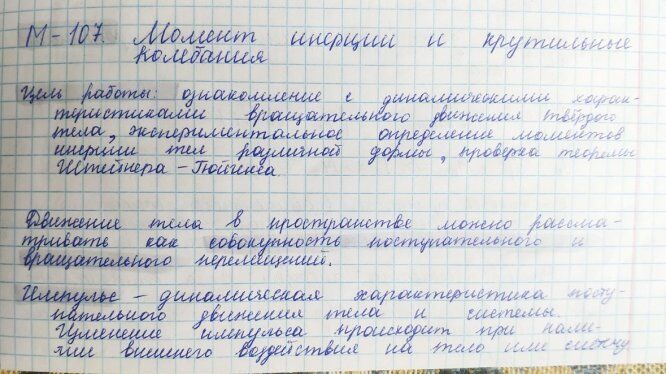 М-107. Момент инерции и крутильные
колебания
Цель работы: ознакомление с динамическими харак-
теристиками вращательного движения твёрдого
тела, экспериментальное определение моментов
инерции тел различной формы, проверка теоремы
Штейнера-Гюйгенса.
Движение тела в пространстве можно рассма-
тривать как совокупность поступательного и
вращательного перемещений.
Импульс - динамическая характеристика посту-
пательного движения тела и системы.
Изменение импульса происходит при нали-
чии внешнего воздействия на тело или систему